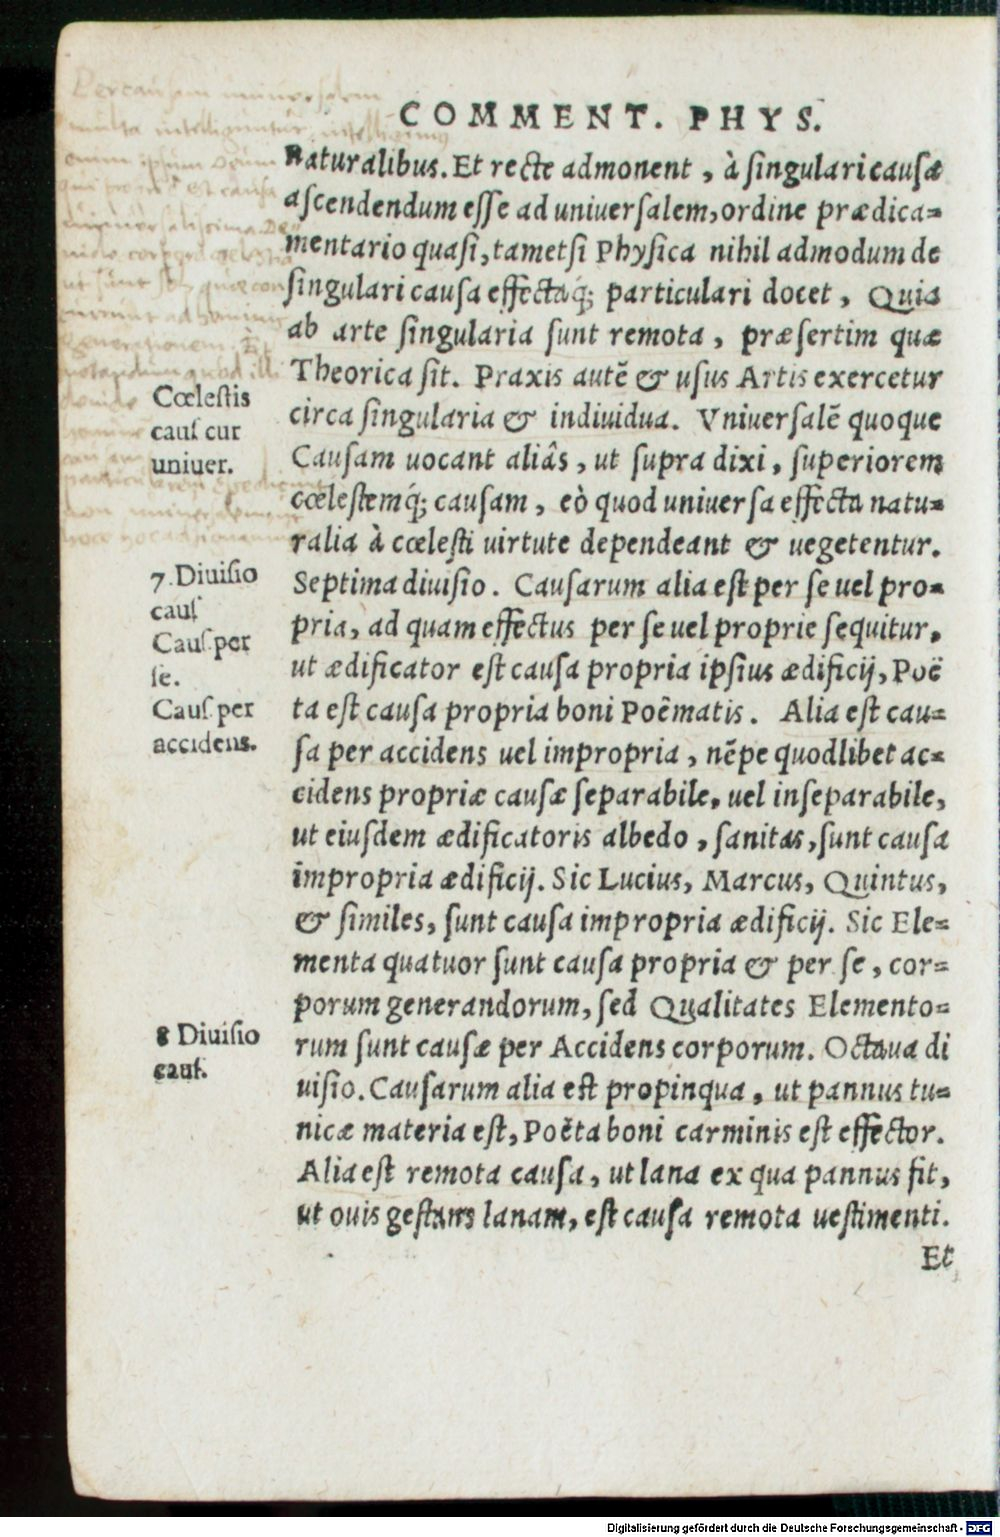 COMMENT. PHYS.
Naturalibus. Et recte admonent, à singulari causa
ascendendum esse ad uniuersalem, ordine prædica=
mentario quasi, tametsi Physica nihil admodum de
singulari causa effectaq́; particulari docet, Quia
ab arte singularia sunt remota, præsertim quæ
Theorica sit. Praxis autẽ & usus Artis exercetur
circa singularia & indiuidua. Vniuersalẽ quoque
Causam uocant aliâs, ut supra dixi, superiorem
cœlestemq́; causam, eò quod uniuersa effecta natu=
ralia à cœlesti uirtute dependeant & uegetentur.
Septima diuisio. Causarum alia est per se uel pro=
pria, ad quam effectus per se uel proprie sequitur,
ut ædificator est causa propria ipsius ædificij, Poë
ta est causa propria boni Poëmatis. Alia est cau=
sa per accidens uel impropria, nẽpe quodlibet ac=
cidens propriæ causæ separabile, uel inseparabile,
ut eiusdem ædificatoris albedo, sanitas, sunt causa
impropria ædificij. Sic Lucius, Marcus, Quintus,
& similes, sunt causa impropria ædificij. Sic Ele=
menta quatuor sunt causa propria & per se, cor=
porum generandorum, sed Qualitates Elemento=
rum sunt causæ per Accidens corporum. Octaua di
uisio. Causarum alia est propinqua, ut pannus tu=
nicæ materia est, Poëta boni carminis est effector.
Alia est remota causa, ut lana ex qua pannus fit,
ut ouis gestans lanam, est causa remota uestimenti.
Et
Cœlestis
caus cur
uniuer.
7. Diuisio
caus
Caus. per
se.
Caus. per
accidens.
8 Diuisio
caus.
Digitalisierung gefördert durch die Deutsche Forschungsgemeinschaft - DFG